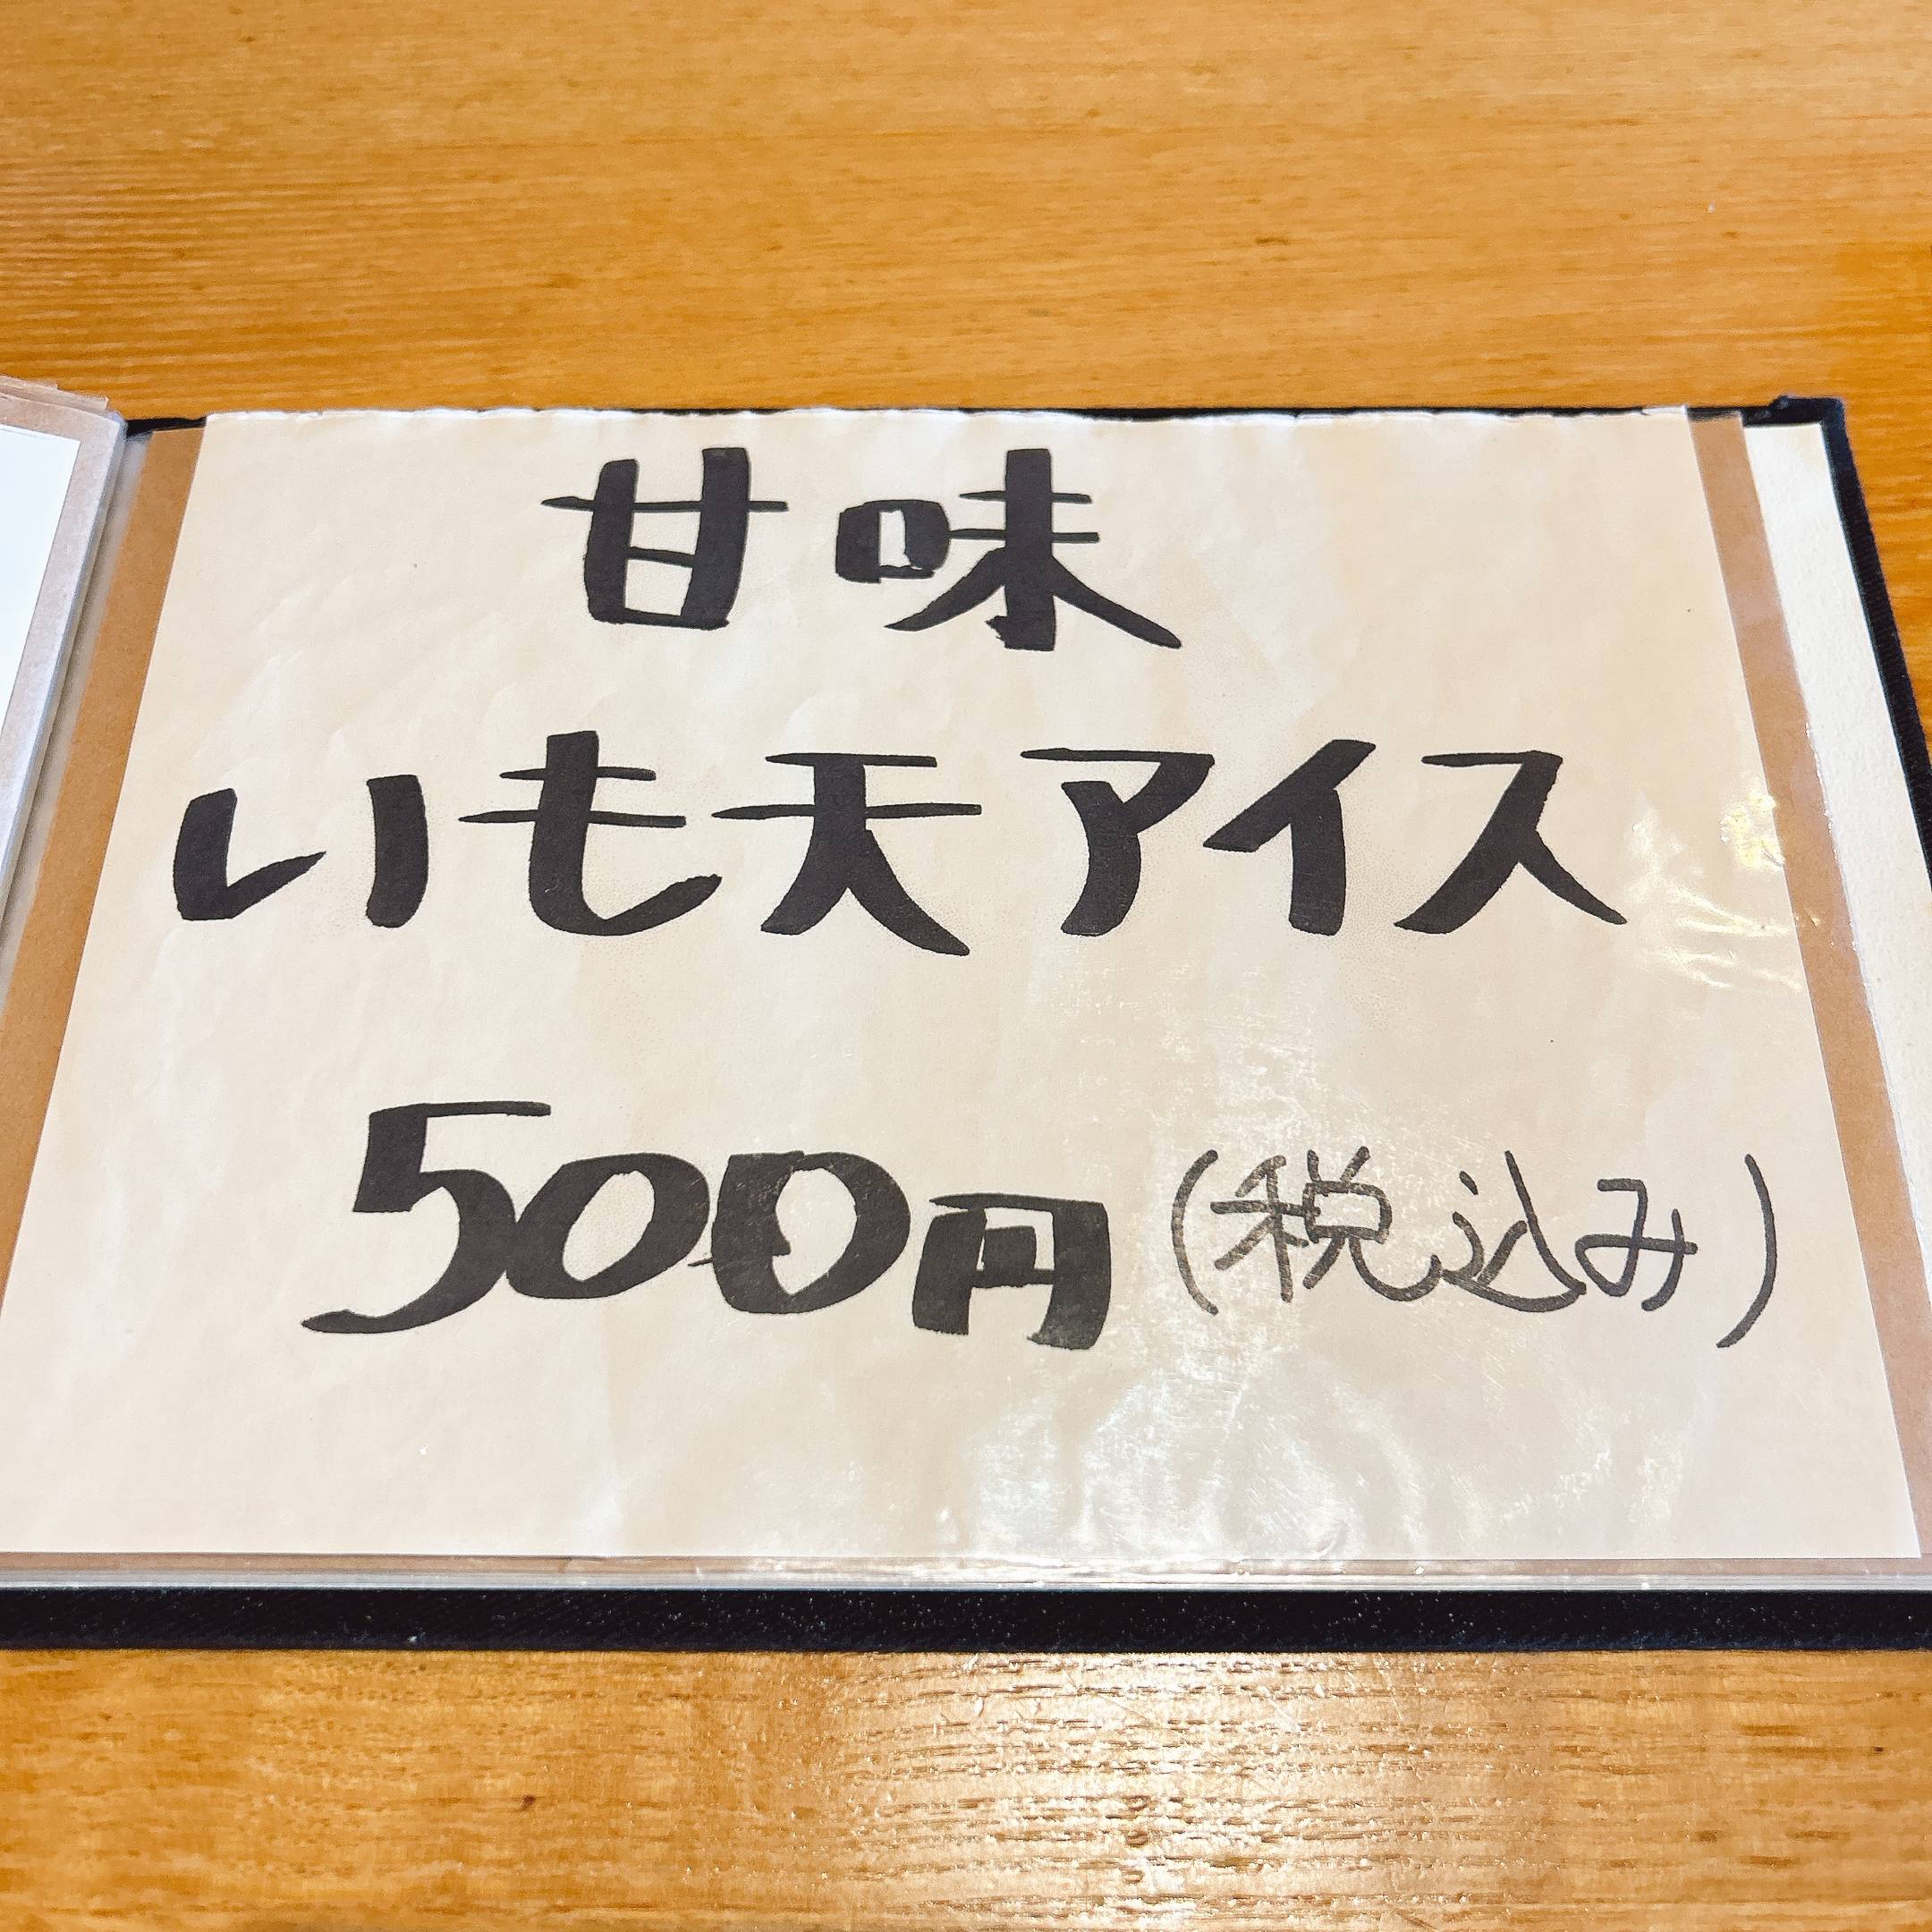 甘味
いも天アイス
500円(税込み)